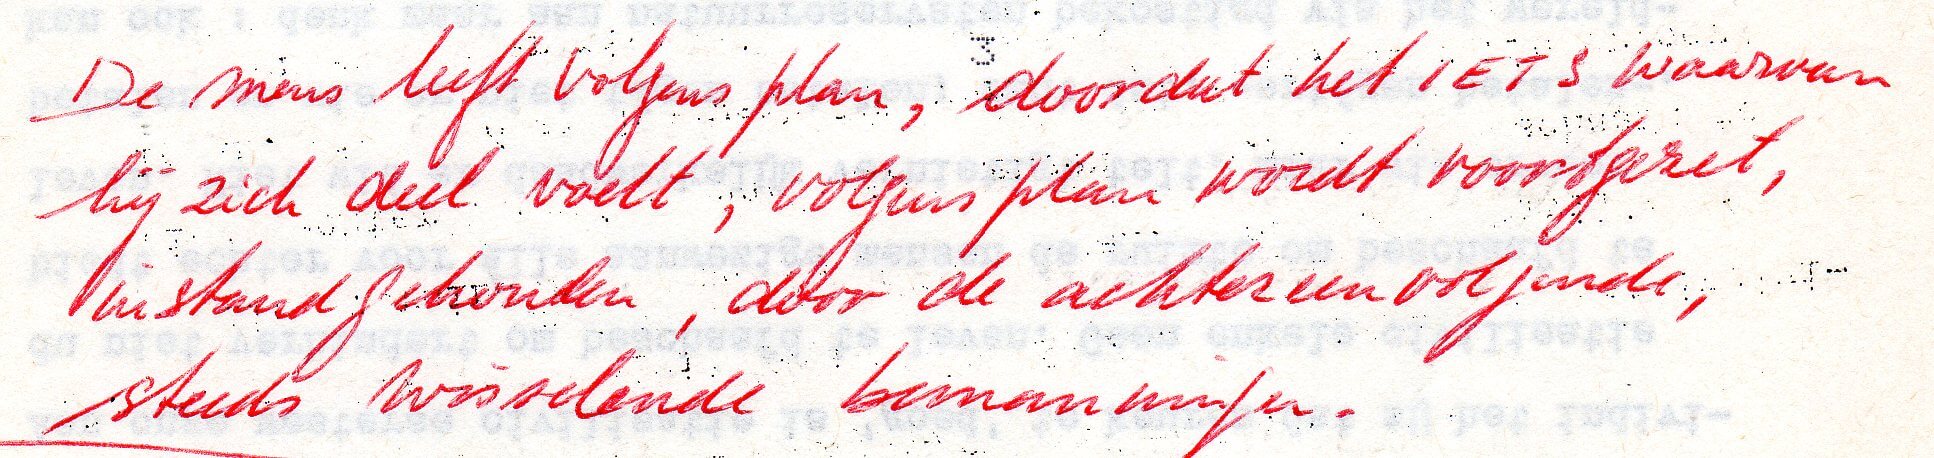 De mens leeft volgens plan, doordat het IETS waarvan
hij zich deel voelt, volgens plan wordt voortgezet,
instandgehouden, door de achtereenvolgende,
steeds wisselende bemanningen.